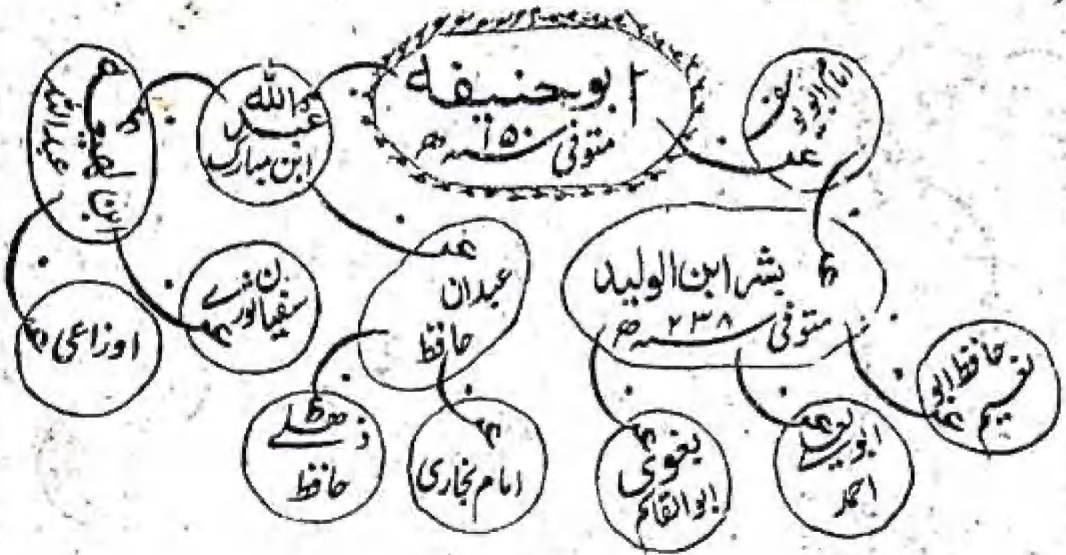 ابو حنیفه
متوفی ۱۵۰ سنه ھ
امام ابو یوسف
عبد الله
ابن مبارک
عبد اللہ
ابن لھیعه
اوزاعی
سفیان ثوری
عبدان
حافظ
ذھلی
حافظ
امام بخاری
بشر ابن الولید
متوفی ۲۳۸ سنه ھ
بغوی
ابو القاسم
ابو یعلی
احمد
حافظ ابو
نعیم